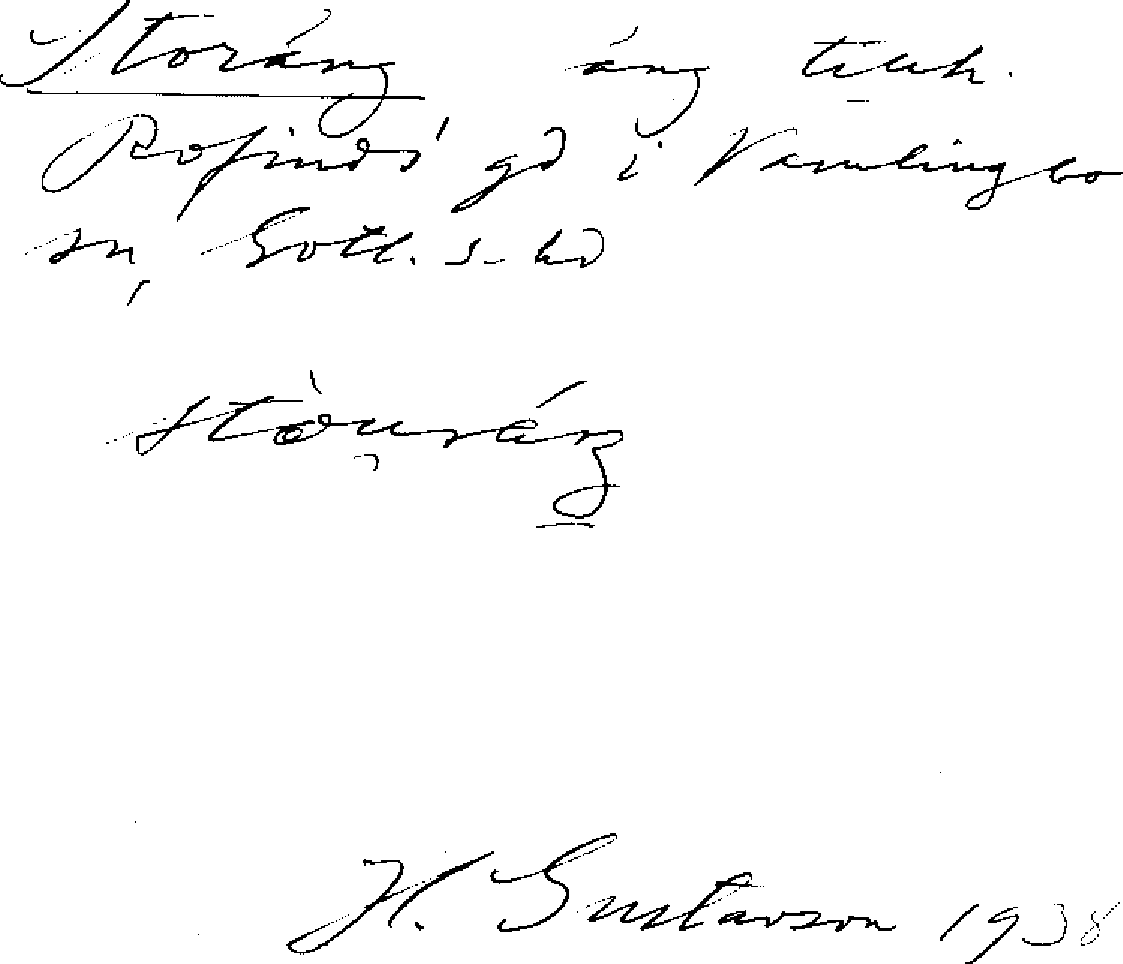 Storäng äng tillh.
Rofinds gd i Vamlingbo
sn, Gotl. s. hd
H. Gustavson 1938